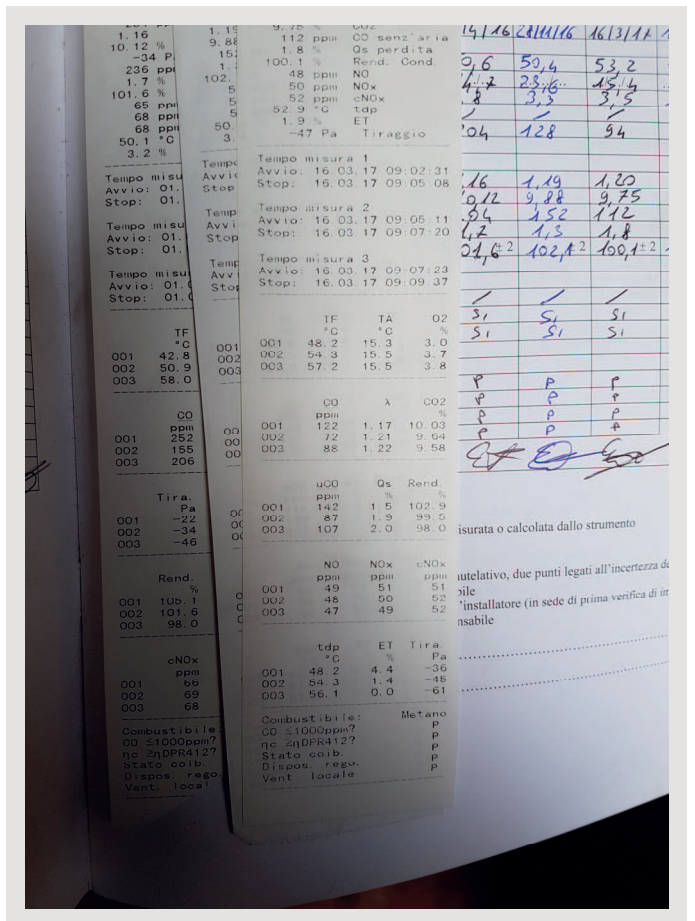 1.16
10.12 %
-34 P
236 ppm
1.7 %
101.6 %
65 ppm
68 ppm
68 ppm
50.1 °C
3.2 %
Tempo misu
Avvio: 01.
Stop: 01.
Tempo misu
Avvio: 01.
Stop: 01.
Tempo misu
Avvio: 01.
Stop: 01.
TF
°C
001 42.8
002 50.9
003 58.0
CO
ppm
001 252
002 155
003 206
Tira.
Pa
001 -22
002 -34
003 -46
Rend.
%
001 105.1
002 101.6
003 98.0
cNOx
ppm
001 66
002 69
003 68
Combustibile
CO ≤1000ppm?
ηc ≥ηDPR412?
Stato coib.
Dispos. rego.
Vent. local
9.88
102.
50.
Tempo
Avvio
Stop
Tempo
Avvi
Stop
Temp
Avv
Stop
001
002
003
9.75 % CO2
112 ppm CO senz'aria
1.8 % Qs perdita
100.1 % Rend. Cond.
48 ppm NO
50 ppm NOx
52 ppm cNOx
52.9 °C tdp
1.9 % ET
-47 Pa Tiraggio
Tempo misura 1
Avvio: 16.03.17 09:02:31
Stop: 16.03.17 09:05:08
Tempo misura 2
Avvio: 16.03.17 09:05:11
Stop: 16.03.17 09:07:20
Tempo misura 3
Avvio: 16.03.17 09:07:23
Stop: 16.03.17 09:09:37
TF TA O2
°C °C %
001 48.2 15.3 3.0
002 54.3 15.5 3.7
003 57.2 15.5 3.8
CO λ CO2
ppm %
001 122 1.17 10.03
002 72 1.21 9.64
003 88 1.22 9.58
uCO Qs Rend.
ppm % %
001 142 1.5 102.9
002 87 1.9 99.5
003 107 2.0 98.0
NO NOx cNOx
ppm ppm ppm
001 49 51 51
002 48 50 52
003 47 49 52
tdp ET Tira.
°C % Pa
001 48.2 4.4 -36
002 54.3 1.4 -45
003 56.1 0.0 -61
Combustibile: Metano
CO ≤1000ppm? P
ηc ≥ηDPR412? P
Stato coib. P
Dispos. rego. P
Vent. locale P
/16 28/11/16 16/3/17
0,6 50,4 53,2
23,6 15,4
,8 3,3 3,5
/ / /
04 128 94
,16 1,19 1,20
0,12 9,88 9,75
152 112
1,7 1,3 1,8
01,6±2 102,1±2 100,1±2
/ / /
Si Si Si
Si Si Si
P P P
P P P
P P P
P P P
isurata o calcolata dallo strumento
autelativo, due punti legati all'incertezza de
bile
'installatore (in sede di prima verifica di im
nsabile